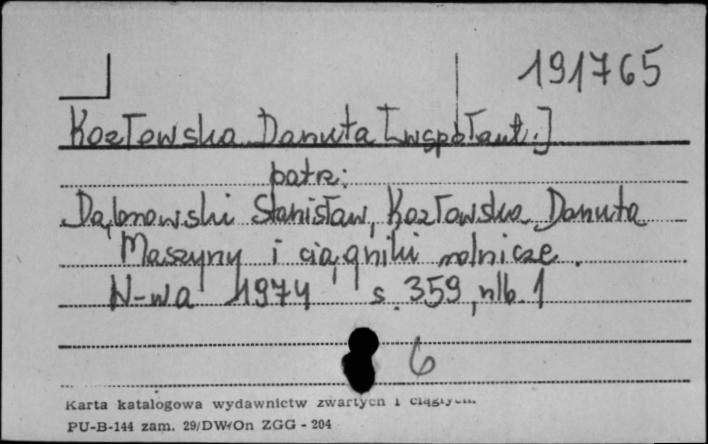 191765
Kozłowska Danuta [współaut.]
patrz:
Dąbrowski Stanisław, Kozłowska Danuta
Maszyny i ciągniki rolnicze.
W-wa 1974 s. 359, nlb. 1
6
Karta katalogowa wydawnictw zwartych i ciągłych.
PU-B-144 zam. 29/DW/On ZGG - 204